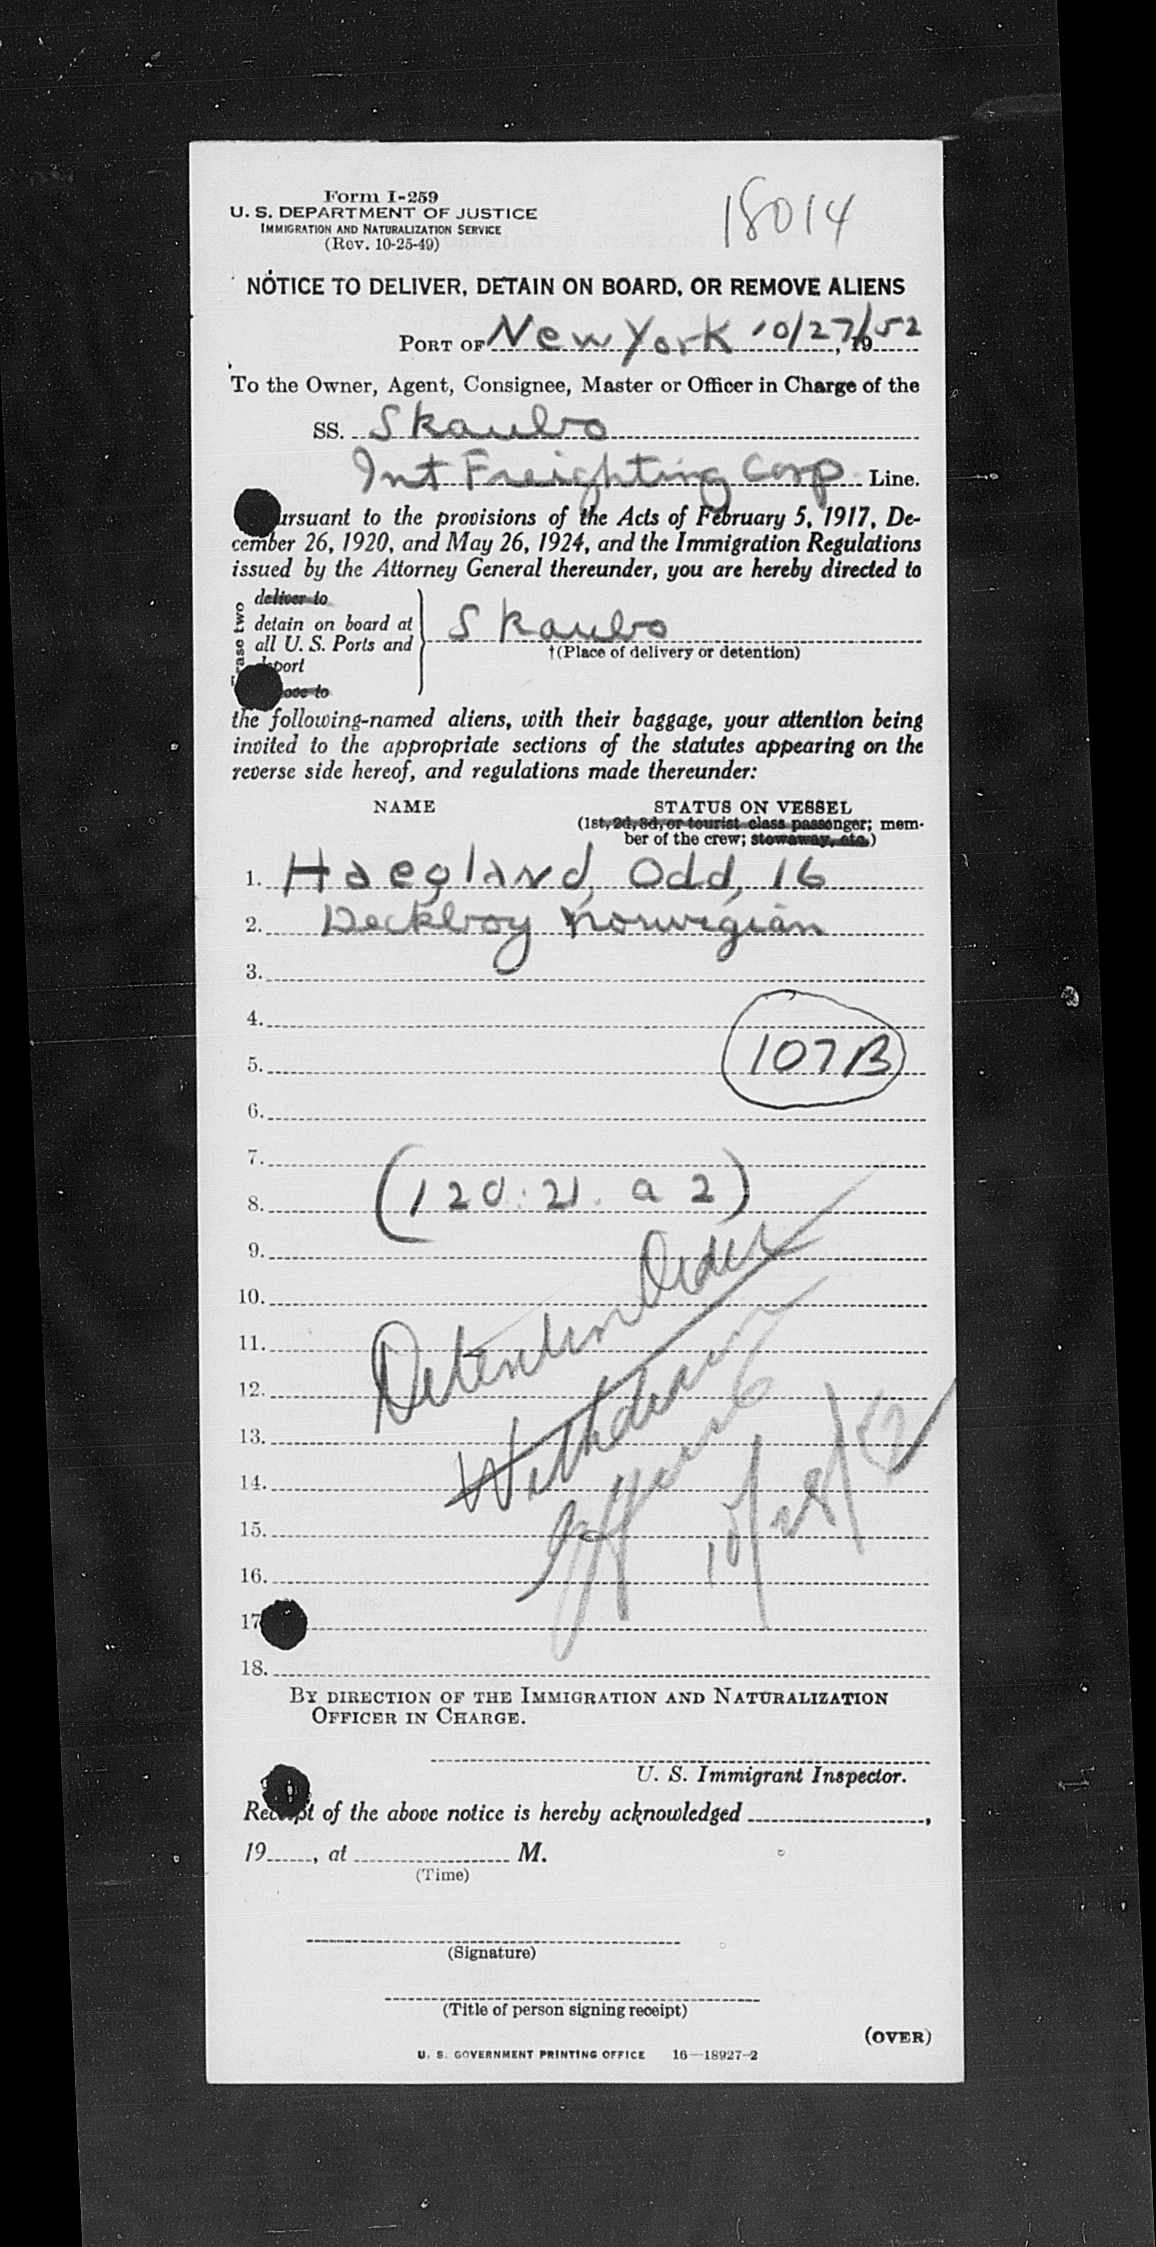 Form I-259
U. S. DEPARTMENT OF JUSTICE
IMMIGRATION AND NATURALIZATION SERVICE
(Rev. 10-25-49)
18014
NOTICE TO DELIVER, DETAIN ON BOARD, OR REMOVE ALIENS
PORT OF New York 10/27/52, 19
To the Owner, Agent, Consignee, Master or Officer in Charge of the
SS. Skaubo
Int Freighting Corp Line.
ursuant to the provisions of the Acts of February 5, 1917, De-
cember 26, 1920, and May 26, 1924, and the Immigration Regulations
issued by the Attorney General thereunder, you are hereby directed to
deliver to
detain on board at
all U. S. Ports and
port
Skaubo
†(Place of delivery or detention)
to
the following-named aliens, with their baggage, your attention being
invited to the appropriate sections of the statutes appearing on the
reverse side hereof, and regulations made thereunder:
NAME STATUS ON VESSEL
(1st, 2d, 3d, or tourist class passenger; mem-
ber of the crew; stowaway, etc.)
1. Haegland, Odd, 16
2. Deckboy Norwegian
3.
4.
5. 107B
6.
7.
8. (120:21. a 2)
9.
10.
11. Detention Order
12.
13. Withdrawn
14.
15. 10/28/52
16.
17
18.
BY DIRECTION OF THE IMMIGRATION AND NATURALIZATION
OFFICER IN CHARGE.
U. S. Immigrant Inspector.
Receipt of the above notice is hereby acknowledged ,
19 , at M.
(Time)
(Signature)
(Title of person signing receipt)
(OVER)
U. S. GOVERNMENT PRINTING OFFICE 16—18927-2